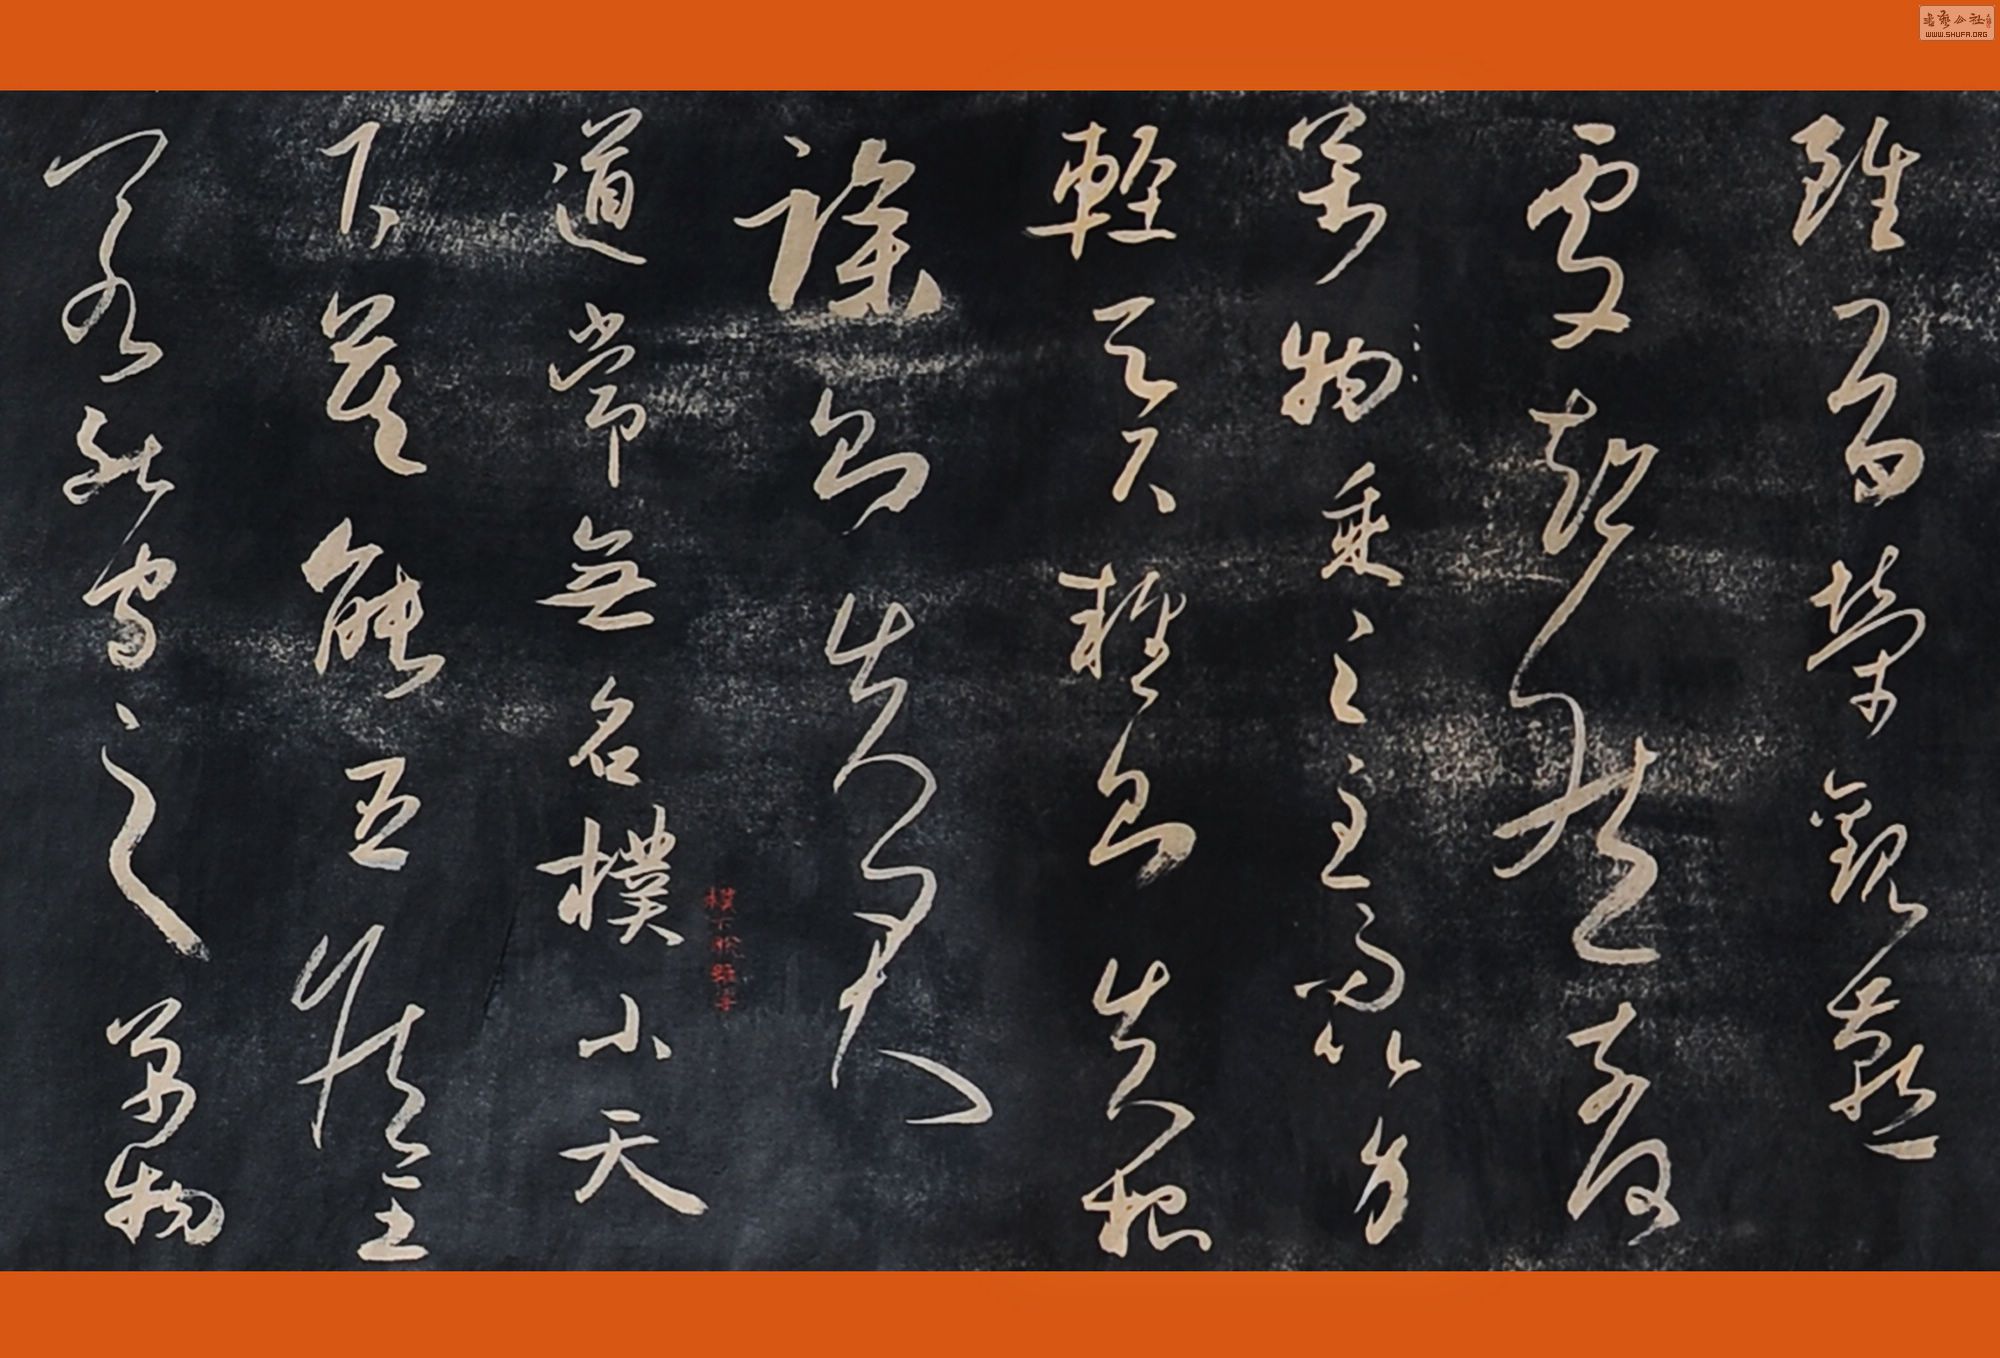 雖有榮觀燕
處超然奈何
萬物乘之主而以身
輕天下輕則失根
躁則失君
樸下脫雖字
道常無名樸小天
下莫能臣侯王
若能守之萬物
書藝公社
WWW.SHUFA.ORG